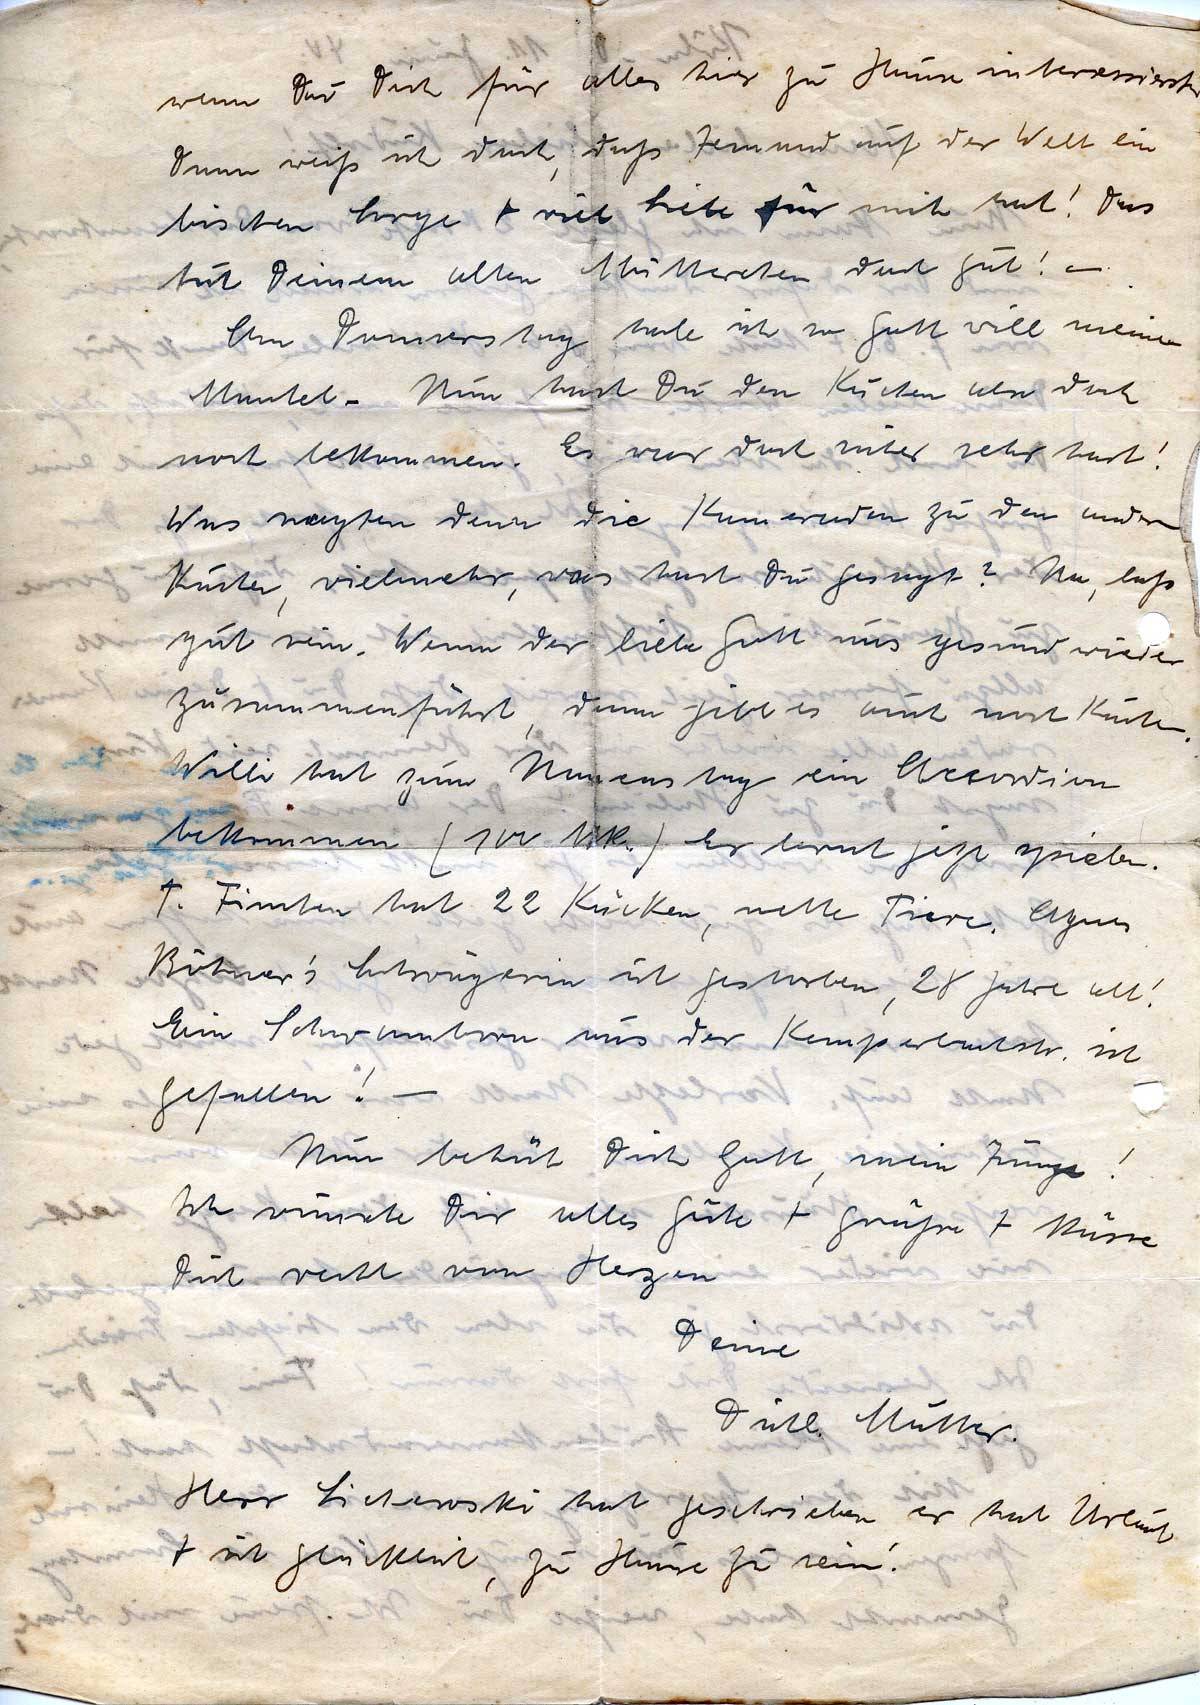 wenn Du Dich für alles hier zu Hause interessierst,
dann weiß ich doch, daß Jemand auf der Welt ein
bischen Sorge + viel Liebe für mich hat! Das
tut Deinem alten Mütterchen doch gut! –
Am Donnerstag hole ich so Gott will meinen
Mantel. – Nun hast Du den Kuchen also doch
noch bekommen. Es war doch sicher sehr hart!
Was sagten denn die Kameraden zu dem andern
Kuchen, vielmehr, was hast Du gesagt? Na, laß
gut sein. Wenn der liebe Gott uns gesund wieder
zusammenführt, dann gibt es auch noch Kuchen.
Willi hat zum Namenstag ein Accordion
bekommen (100 Mk.) Er lernt jetzt spielen.
T. Finchen hat 22 Kücken, nette Tiere. Agnes
Schwägerin ist gestorben, 28 Jahre alt!
Ein Schwamborn aus der Kemperbachstr. ist
gefallen! –
Nun behüt Dich Gott, mein Junge!
Ich wünsche Dir alles Gute + grüße + küsse
Dich recht von Herzen
Deine
Mutter.
Herr hat geschrieben er hat Urlaub
+ ist glücklich, zu Hause zu sein!